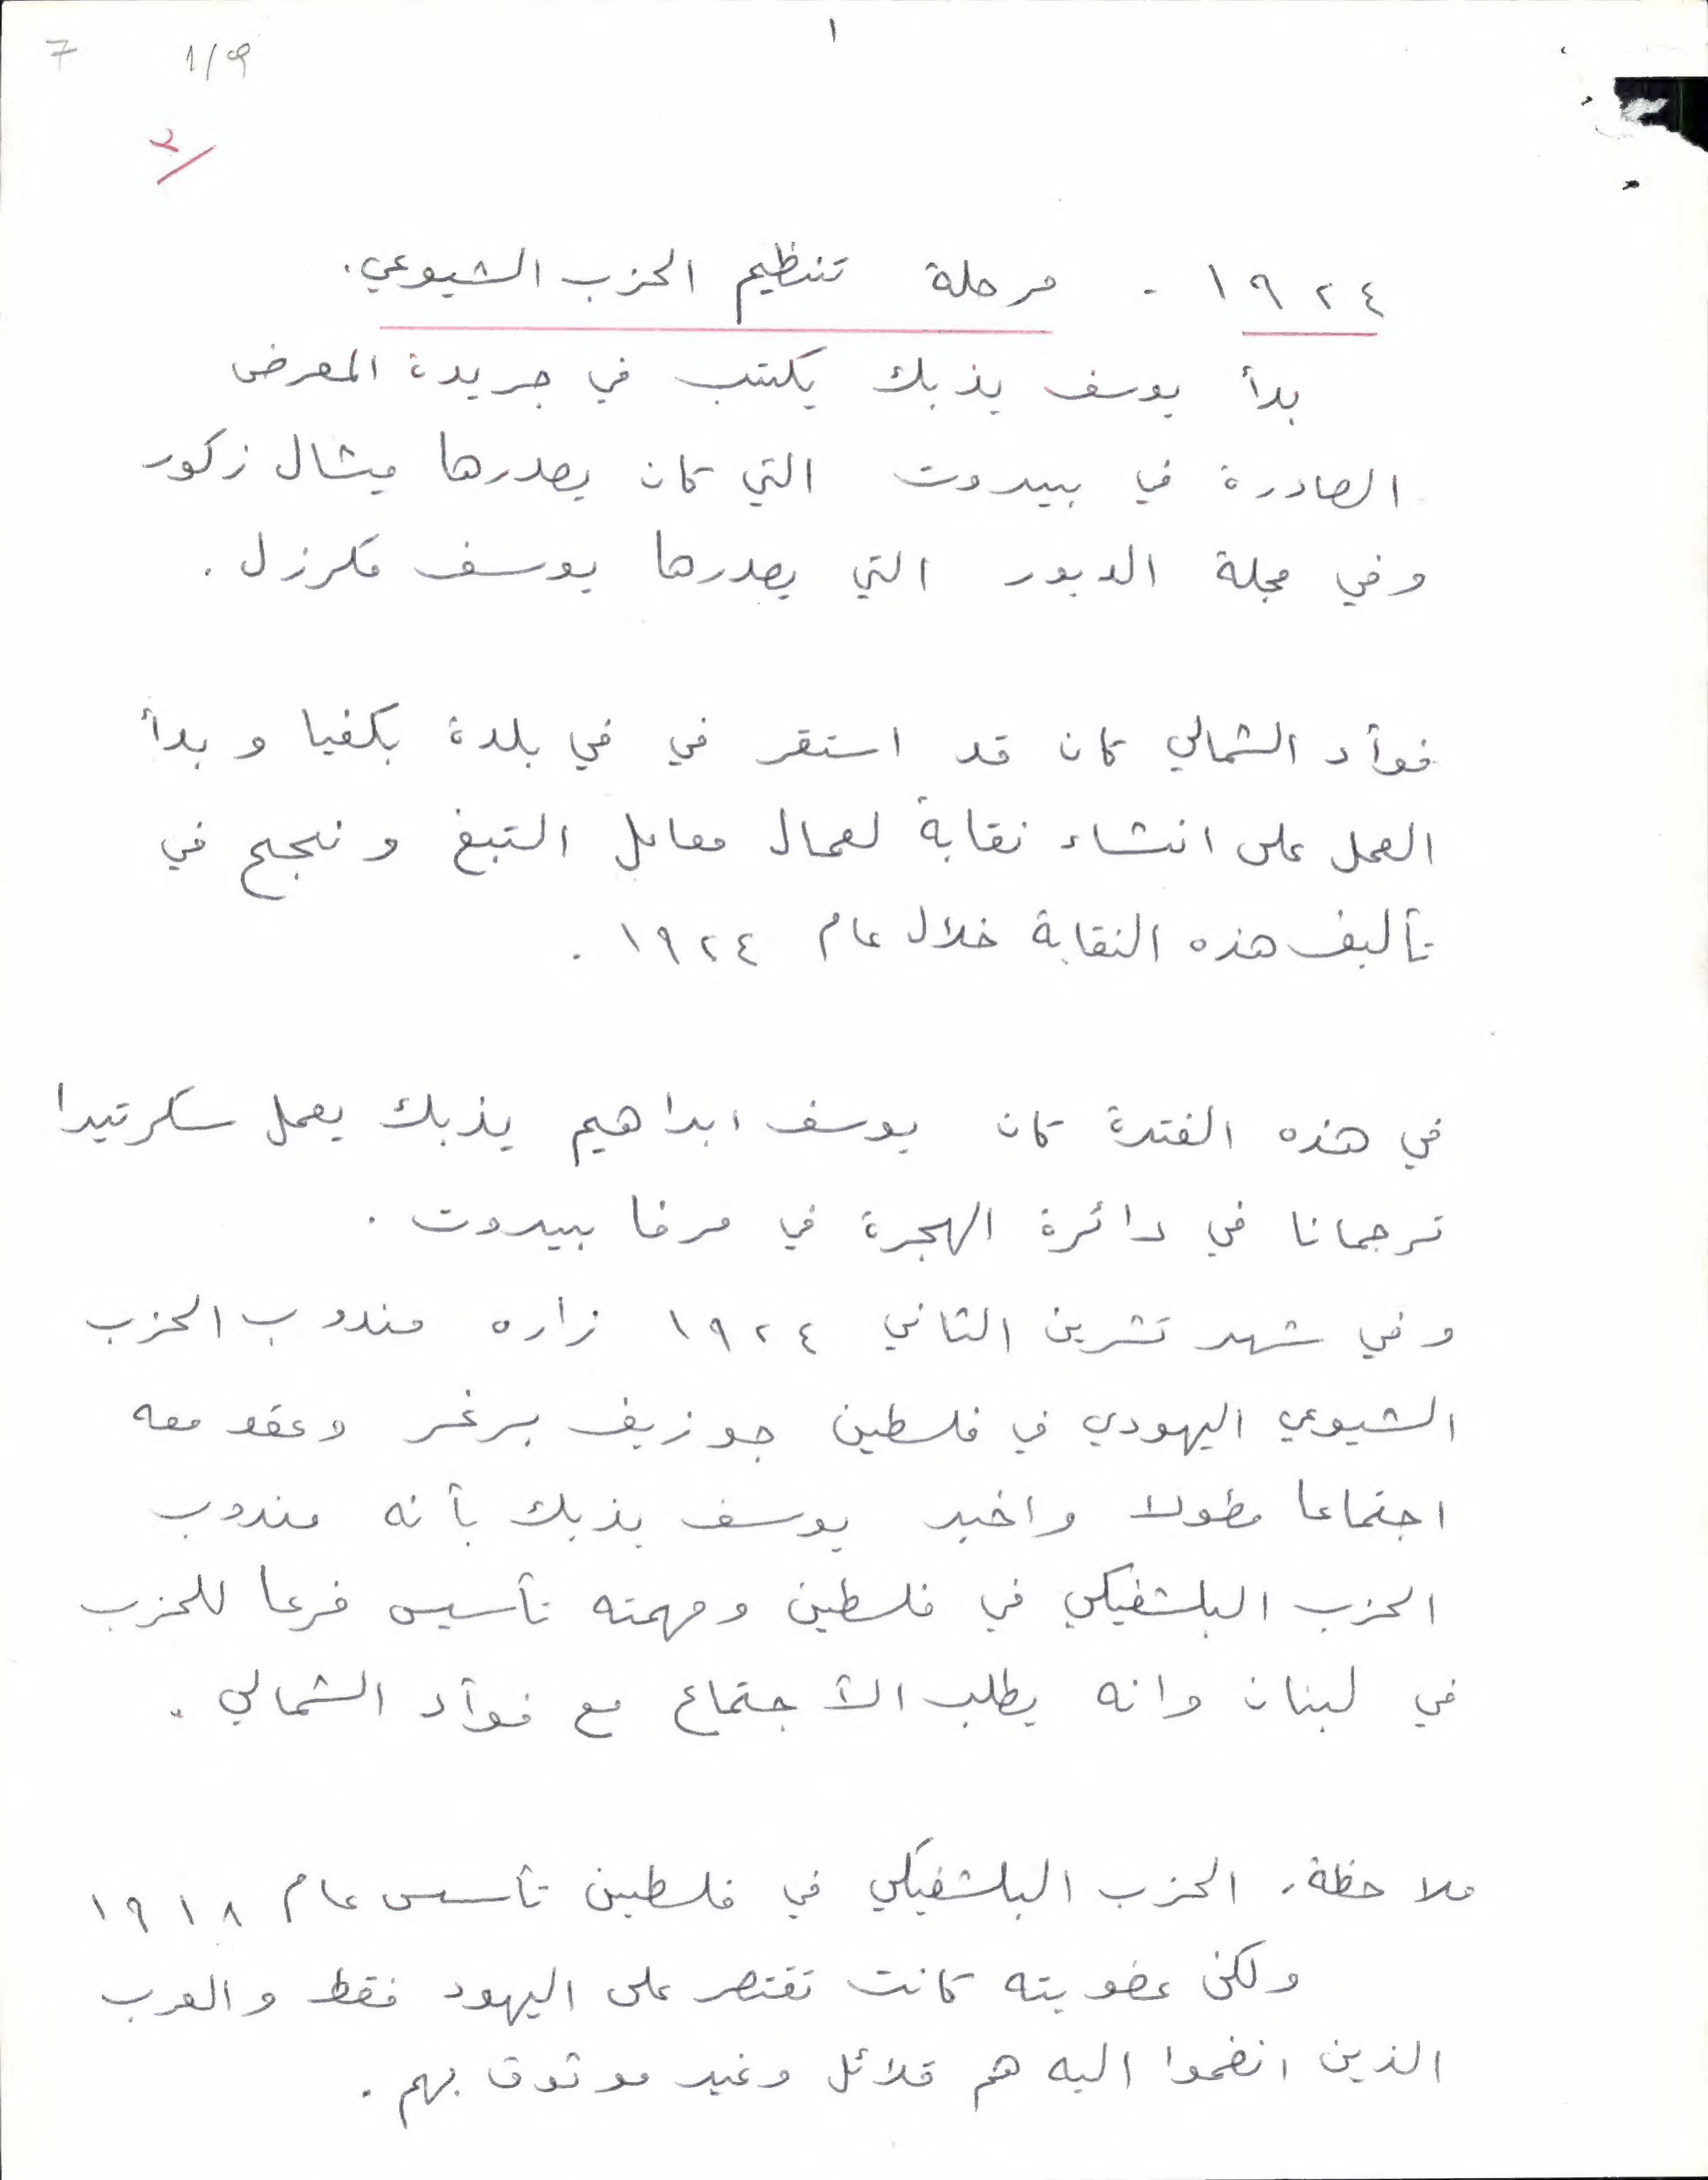 ١
7
1/9
٢/
١٩٢٤ - مرحلة تنظيم الحزب الشيوعي.
بدأ يوسف يزبك يكتب في جريدة المعرض
الصادرة في بيروت التي كان يصدرها ميشال زكور
وفي مجلة الدبور التي يصدرها يوسف مكرزل .
فوأد الشمالي كان قد استقر في في بلدة بكفيا و بدأ
العمل على انشاء نقابة لعمال معامل التبغ و نجح في
تأليف هذه النقابة خلال عام ١٩٢٤ .
في هذه الفترة كان يوسف ابراهيم يذبك يعمل سكرتيرا
ترجمانا في دائرة الهجرة في مرفا بيروت .
وفي شهر تشرين الثاني ١٩٢٤ زاره مندوب الحزب
الشيوعي اليهودي في فلسطين جوزيف برغر وعقد معه
اجتماعا مطولا واخبر يوسف يذبك بأنه مندوب
الحزب البلشفيكي في فلسطين ومهمته تأسيس فرعا للحزب
في لبنان وانه يطلب الأجتماع مع فوأد الشمالي .
ملاحظة، الحزب البلشفيكي في فلسطين تأسس عام ١٩١٨
ولكن عضويته كانت تقتصر على اليهود فقط والعرب
الذين انضموا اليه هم قلائل وغير موثوق بهم .